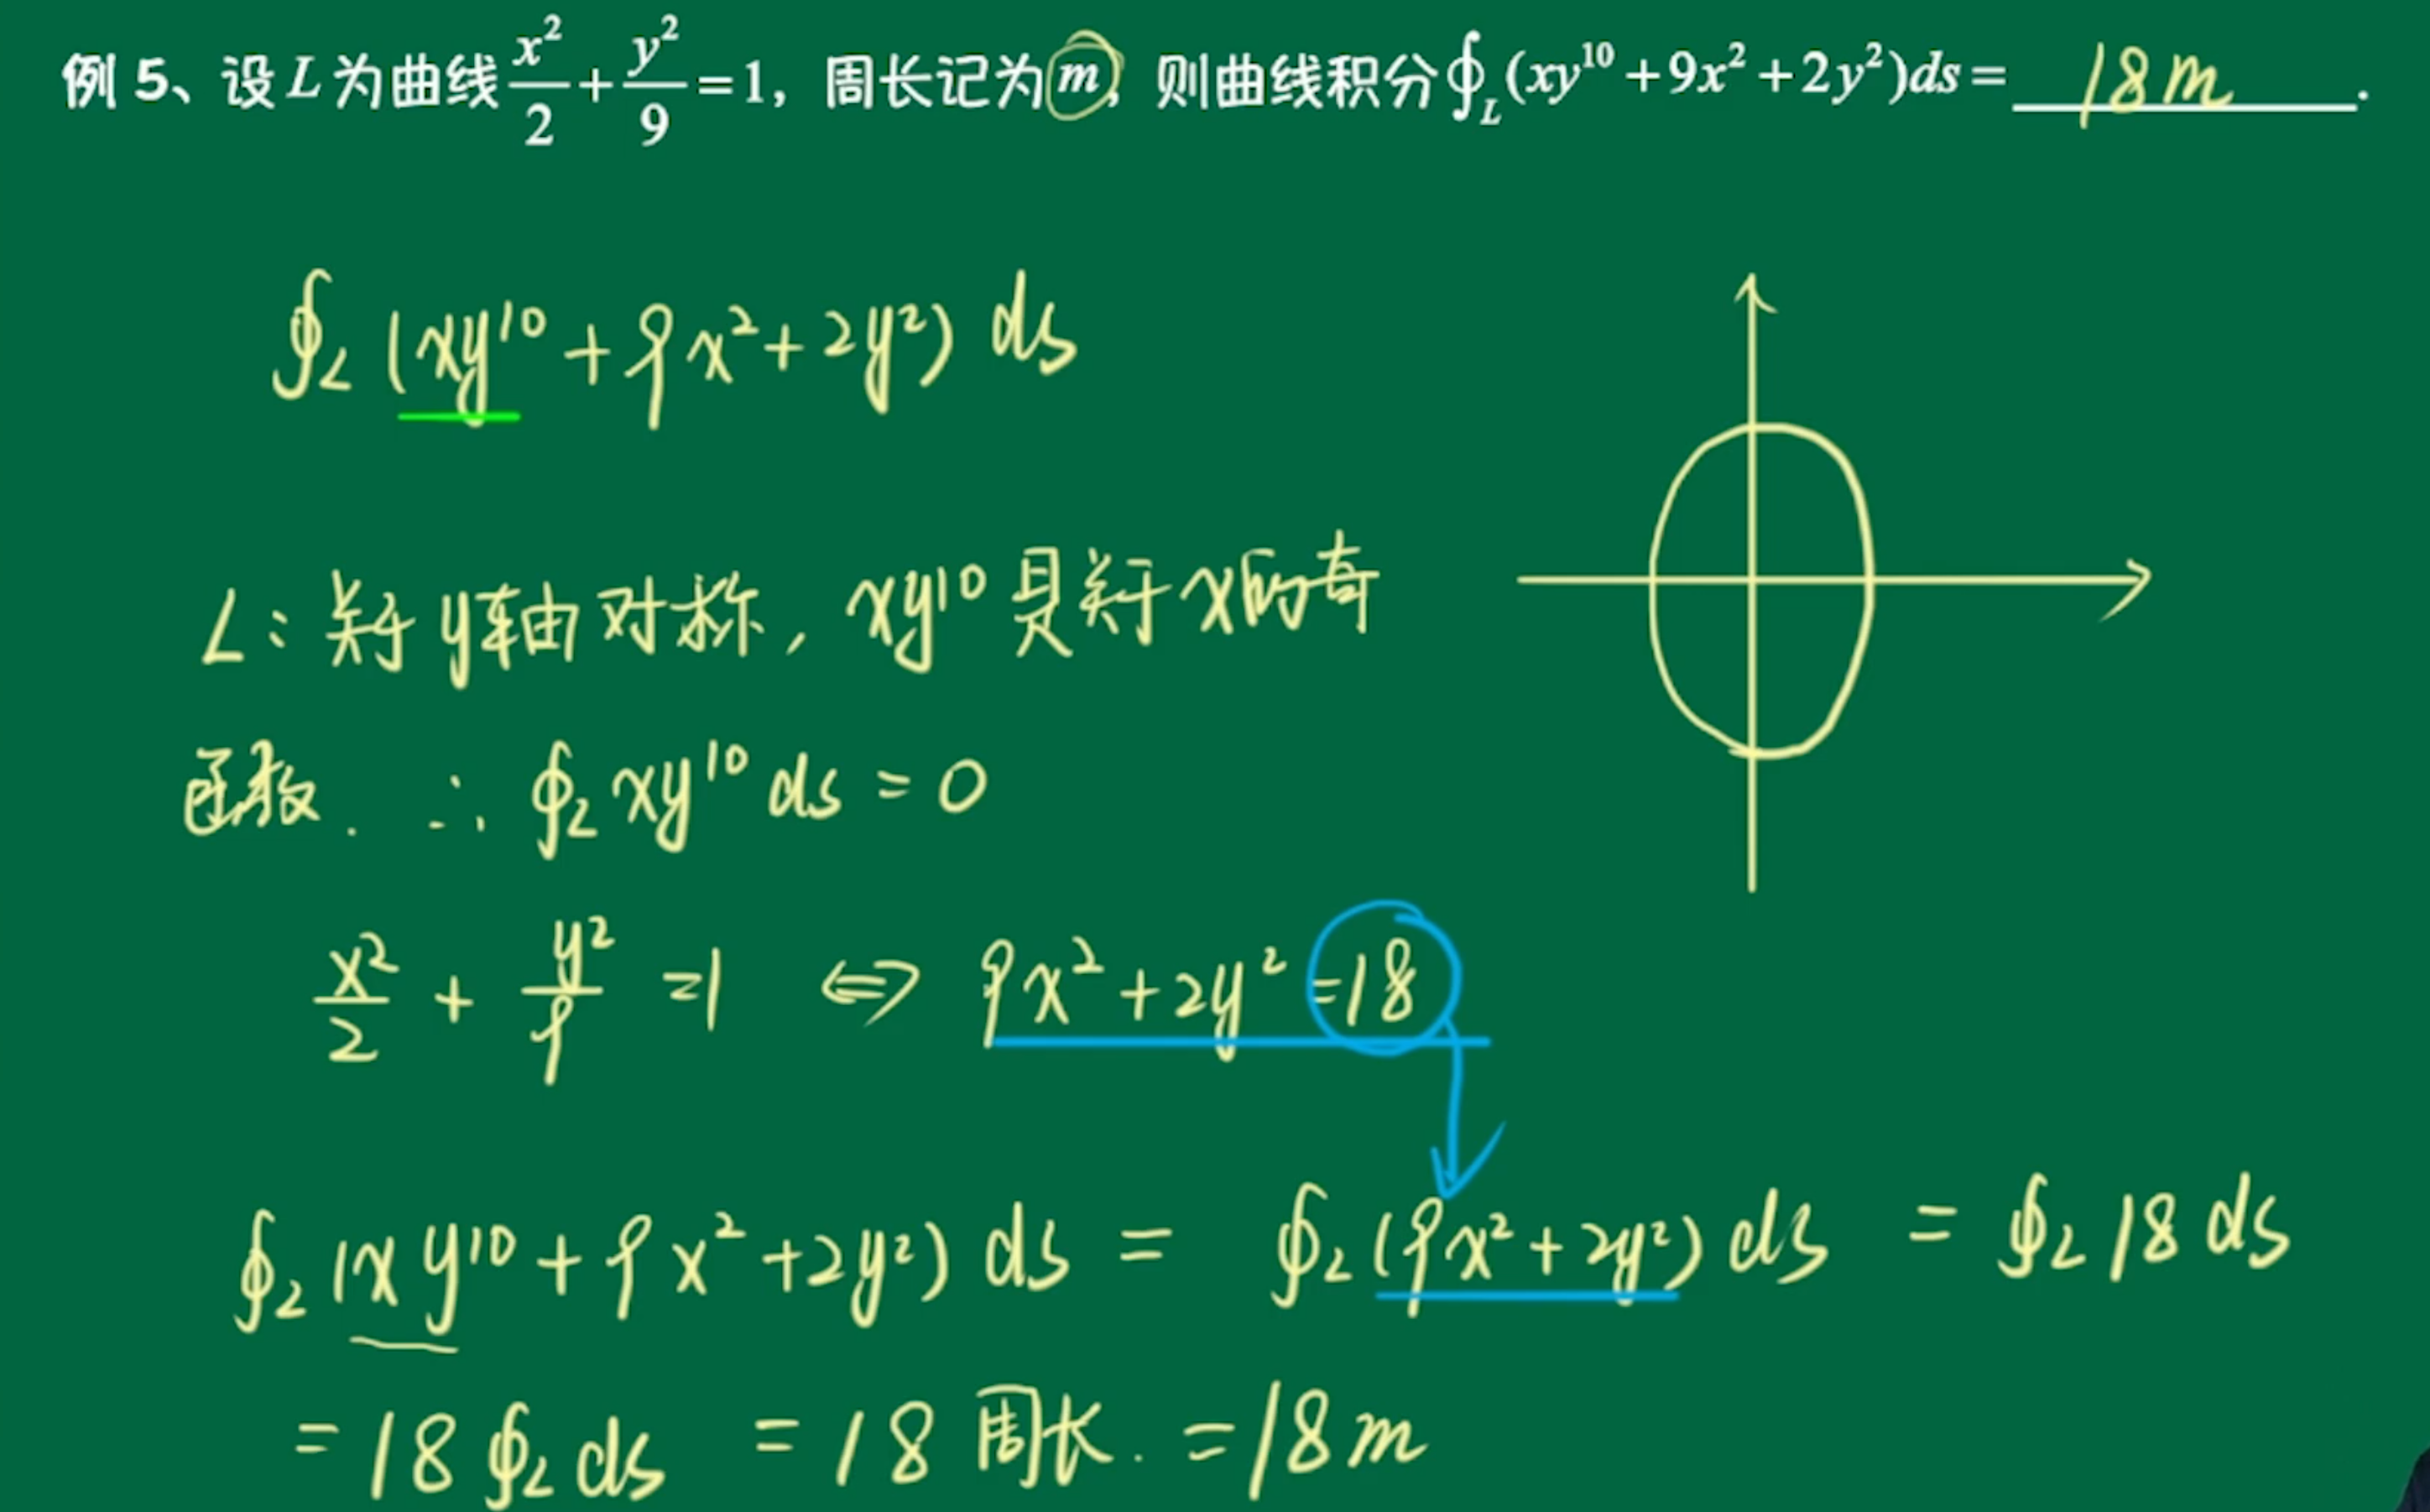 例 5、设 L 为曲线 x²/2 + y²/9 = 1, 周长记为 m, 则曲线积分 ∮_L (xy¹⁰ + 9x² + 2y²)ds = 18m .
∮_L (xy¹⁰ + 9x² + 2y²) ds
L: 关于 y轴由对称, xy¹⁰ 是关于 x 的奇
函数. ∴ ∮_L xy¹⁰ ds = 0
x²/2 + y²/9 = 1 ⇔ 9x² + 2y² = 18
∮_L (xy¹⁰ + 9x² + 2y²) ds = ∮_L (9x² + 2y²) ds = ∮_L 18 ds
= 18 ∮_L ds = 18 周长. = 18m